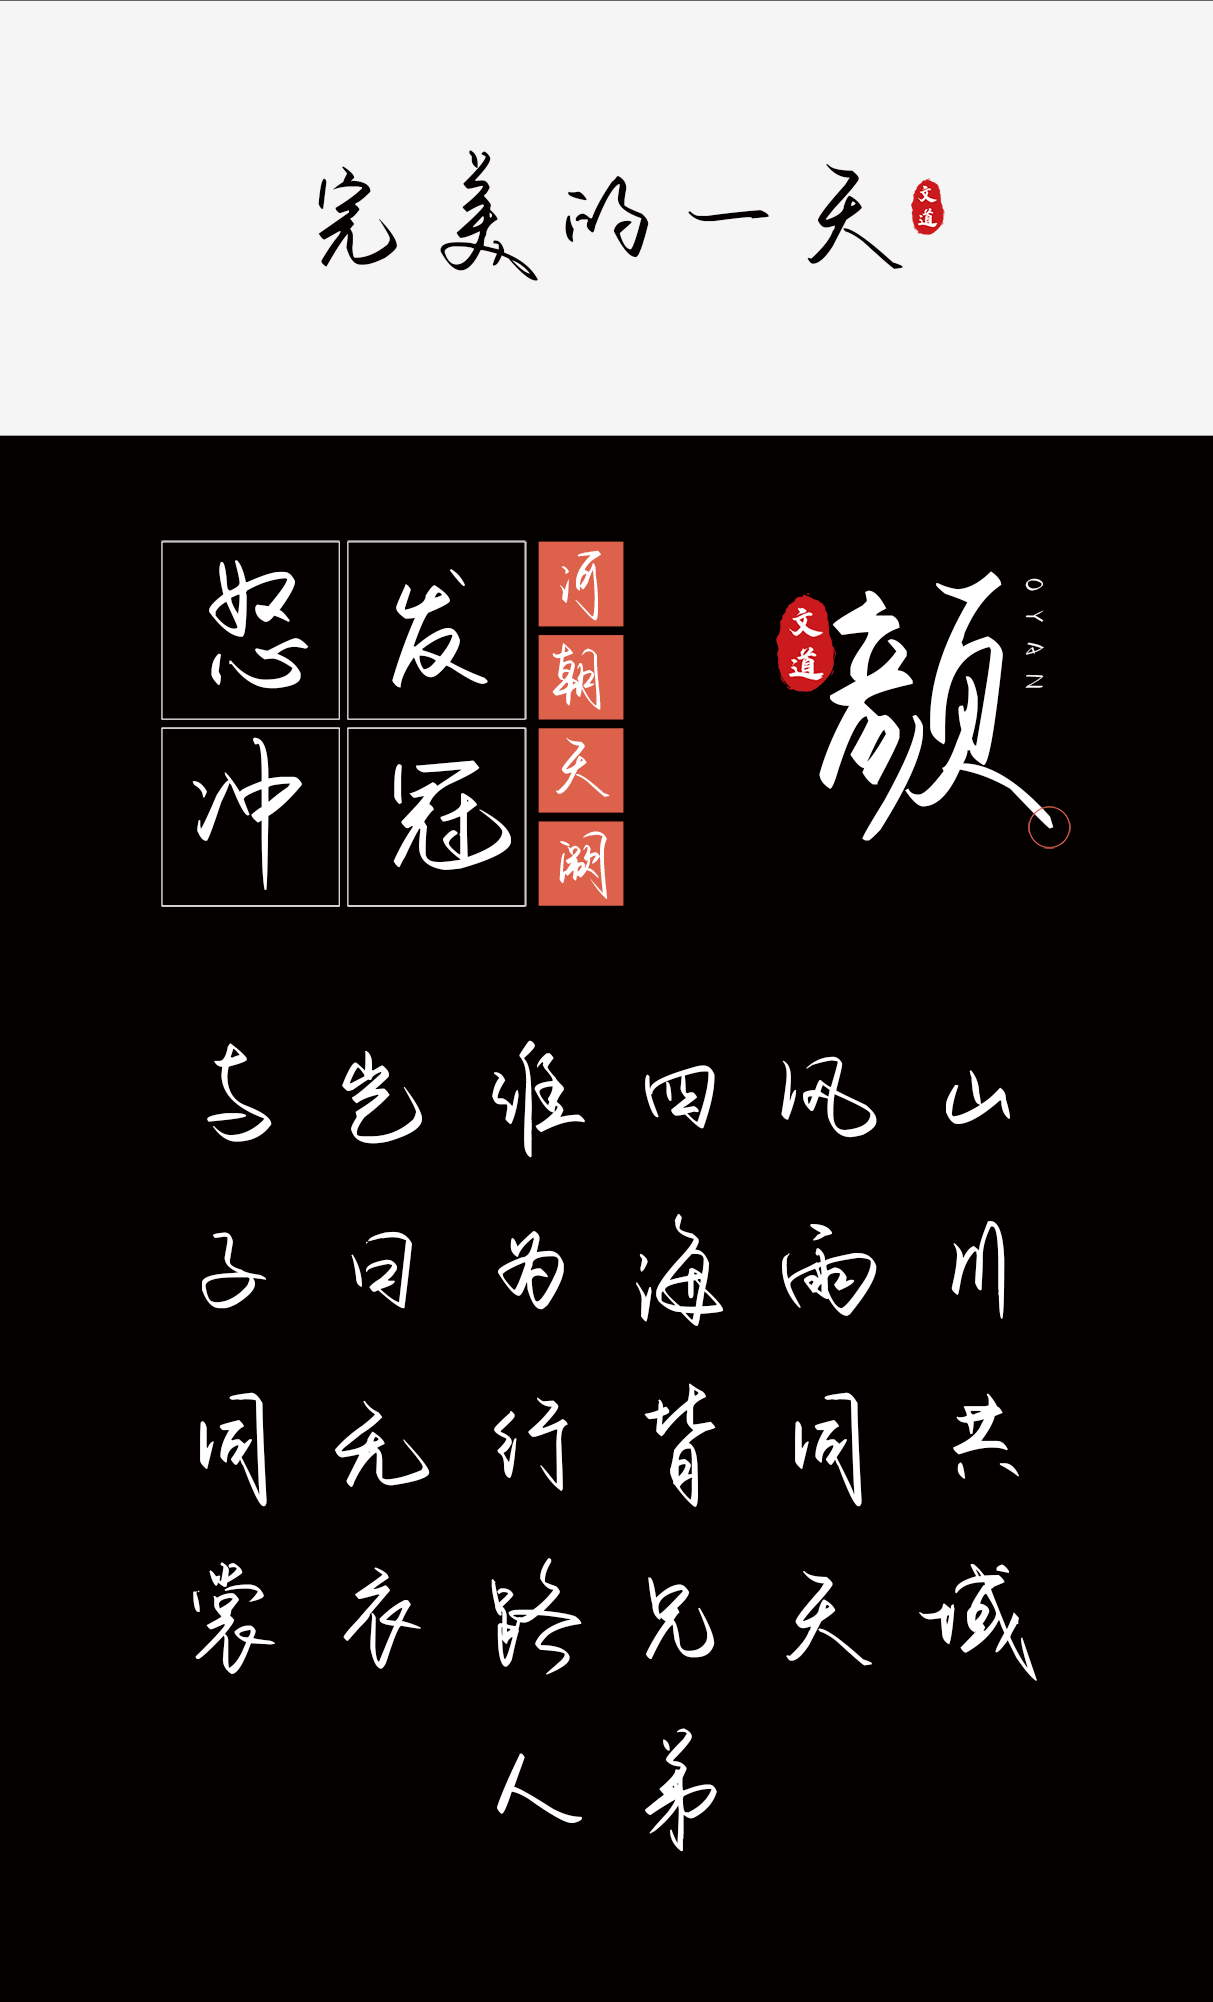 完美的一天
文道
怒发
冲冠
河朝天阙
文道
颜
OYAN
山川共域
风雨同天
四海皆兄弟
谁为行路人
岂曰无衣
与子同裳